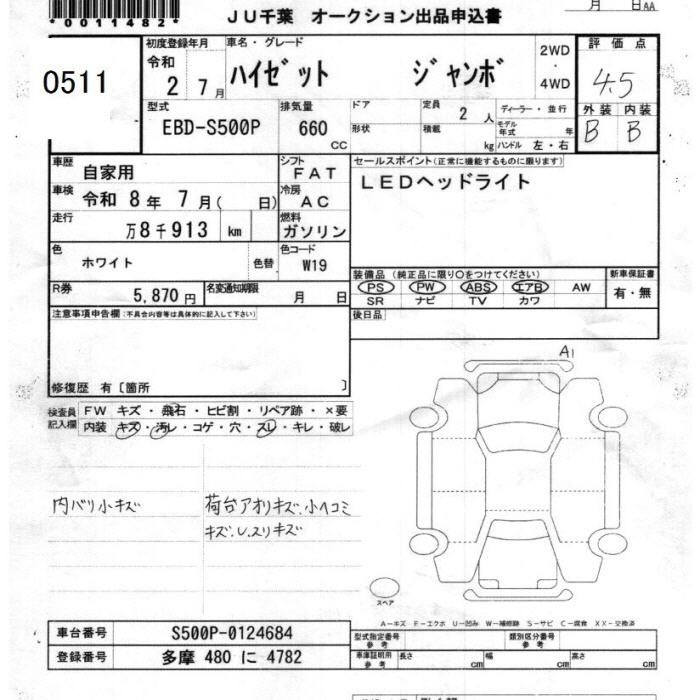 *0011482*
ＪＵ千葉 オークション出品申込書
月 日AA
0511
初度登録年月
令和
2 7月
車名・グレード
ハイゼット ジャンボ
2WD
・
4WD
評価点
4.5
外装 内装
B B
型式
EBD-S500P
排気量
660
CC
ドア
形状
定員
2 人
積載
kg
ディーラー・並行
モデル年式 年
ハンドル 左・右
車歴
自家用
シフト
FAT
車検
令和 8年 7月( 日)
冷房
AC
走行
万8千913 km
燃料
ガソリン
色
ホワイト
色替
色コード
W19
R券
5,870円
名変通知期限
月 日
セールスポイント(正常に機能するものに限ります)
LEDヘッドライト
装備品 (純正品に限り○をつけてください)
PS PW ABS エアB AW
SR ナビ TV カワ
新車保証書
有・無
後日品
注意事項申告欄(不具合内容等は具体的に記入して下さい)
修復歴 有〔箇所 〕
検査員記入欄
FW キズ・飛石・ヒビ割・リペア跡・×要
内装 キズ・汚レ・コゲ・穴・スレ・キレ・破レ
内バリ小キズ
荷台アオリキズ、小ヘコミ
キズ、U、スリキズ
A1
スペア
A－キズ F－エクボ U－凹み W－補修跡 S－サビ C－腐食 XX－交換済
車台番号 S500P-0124684
登録番号 多摩 480 に 4782
型式指定番号
参考
類別区分番号
参考
車庫証明用
参考
長さ cm 幅 cm 高さ cm